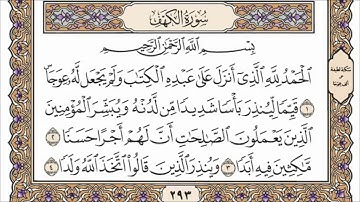 سُورَةُ الكَهْفِ
بِسْمِ اللَّهِ الرَّحْمَٰنِ الرَّحِيمِ
الْحَمْدُ لِلَّهِ الَّذِي أَنزَلَ عَلَىٰ عَبْدِهِ الْكِتَابَ وَلَمْ يَجْعَل لَّهُ عِوَجَا
۝١ قَيِّمًا لِّيُنذِرَ بَأْسًا شَدِيدًا مِّن لَّدُنْهُ وَيُبَشِّرَ الْمُؤْمِنِينَ
الَّذِينَ يَعْمَلُونَ الصَّالِحَاتِ أَنَّ لَهُمْ أَجْرًا حَسَنًا ۝٢
مَّاكِثِينَ فِيهِ أَبَدًا ۝٣ وَيُنذِرَ الَّذِينَ قَالُوا اتَّخَذَ اللَّهُ وَلَدًا ۝٤
٢٩٣